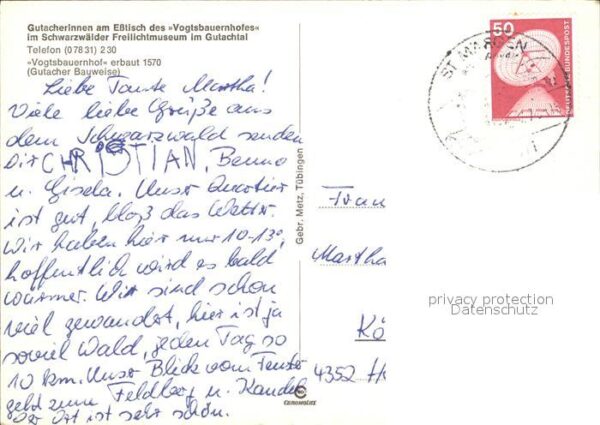 Gutacherinnen am Eßtisch des »Vogtsbauernhofes«
im Schwarzwälder Freilichtmuseum im Gutachtal
Telefon (07831) 230
»Vogtsbauernhof« erbaut 1570
(Gutacher Bauweise)
Liebe Tante Martha!
Viele liebe Grüße aus
dem Schwarzwald senden
Dir CHRISTIAN, Benno
u. Gisela. Unser Quartier
ist gut, bloß das Wetter.
Wir haben hier nur 10-13°,
hoffentlich wird es bald
wärmer. Wir sind schon
viel gewandert, hier ist ja
soviel Wald, jeden Tag so
10 km. Unser Blick vom Fenster
geht zum Feldberg u. Kandel
Der Ort ist sehr schön.
Gebr. Metz, Tübingen
CEKUMOLUX
50
DEUTSCHE BUNDESPOST
ST. MÄRGEN
Frau
Martha
Kö
4352 He
privacy protection
Datenschutz